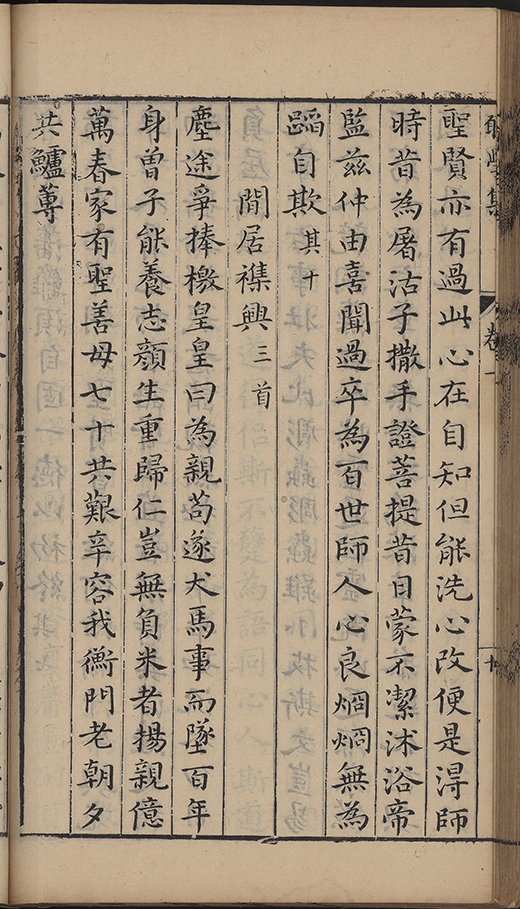 集 卷一 十
聖賢亦有過此心在自知但能洗心改便是淂師
時昔為屠沽子撒手證菩提昔日蒙不潔沐浴帝
監兹仲由喜聞過卒為百世師人心良烱烱無為
蹈自欺其十
間居襍興三首
塵途爭捧檄皇皇曰為親苟遂犬馬事而墜百年
身曾子能養志顏生重歸仁豈無負米者揚親億
萬春家有聖善母七十共艱辛容我衡門老朝夕
共鱸蓴